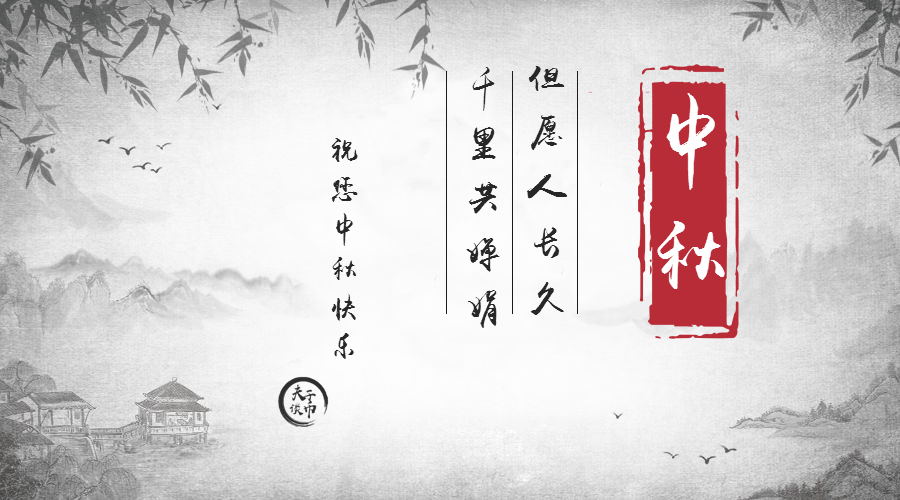 中秋
但愿人长久
千里共婵娟
祝您中秋快乐